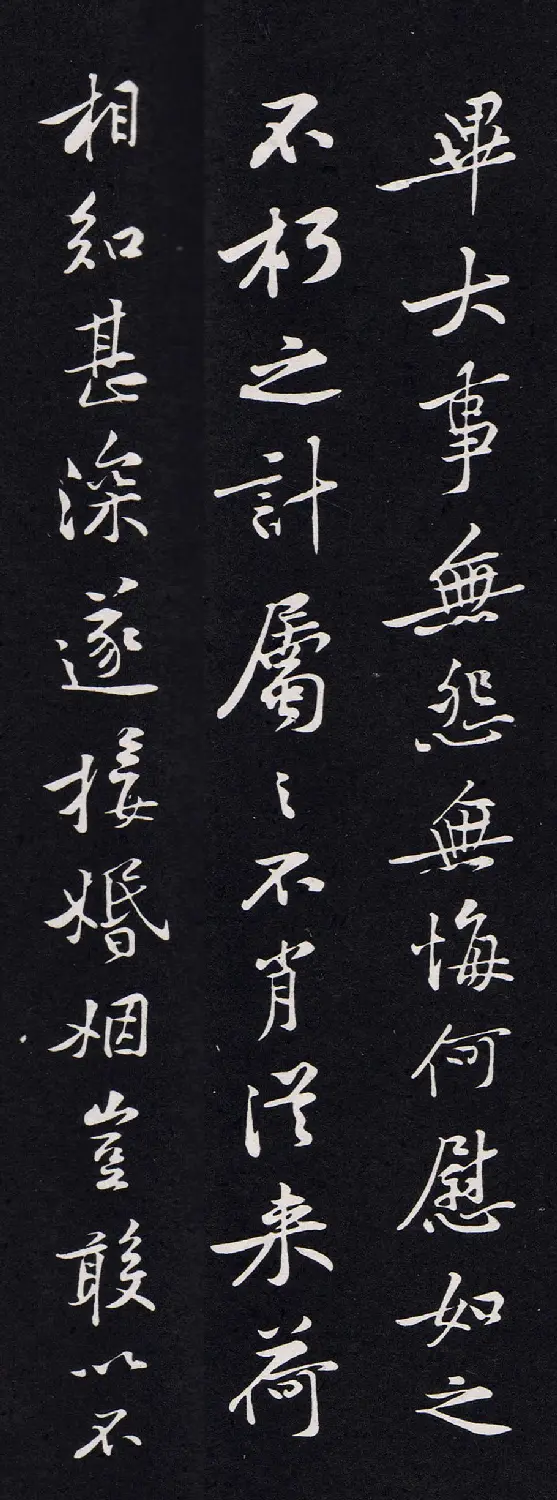 畢大事無怨無悔何慰如之
不朽之計屬之不肖從來荷
相知甚深遂接婚姻豈敢以不